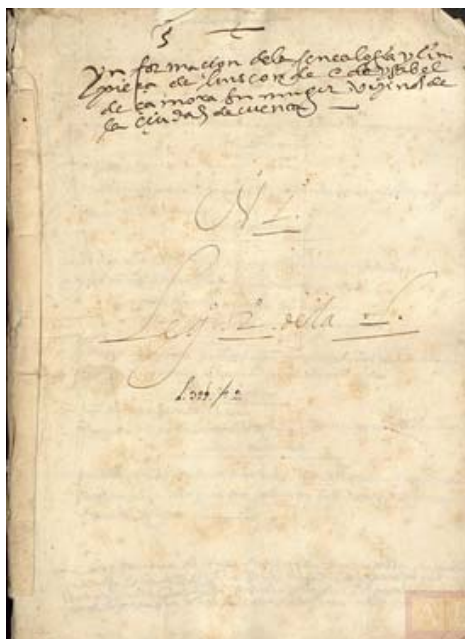 ynformacion dela genealogia y lim
pieça de luis conde e de ysabel
de çamora su muger vezinos de
la ciudad de cuenca
N 2.
Leg. 2 de la
L. 322. n. 2